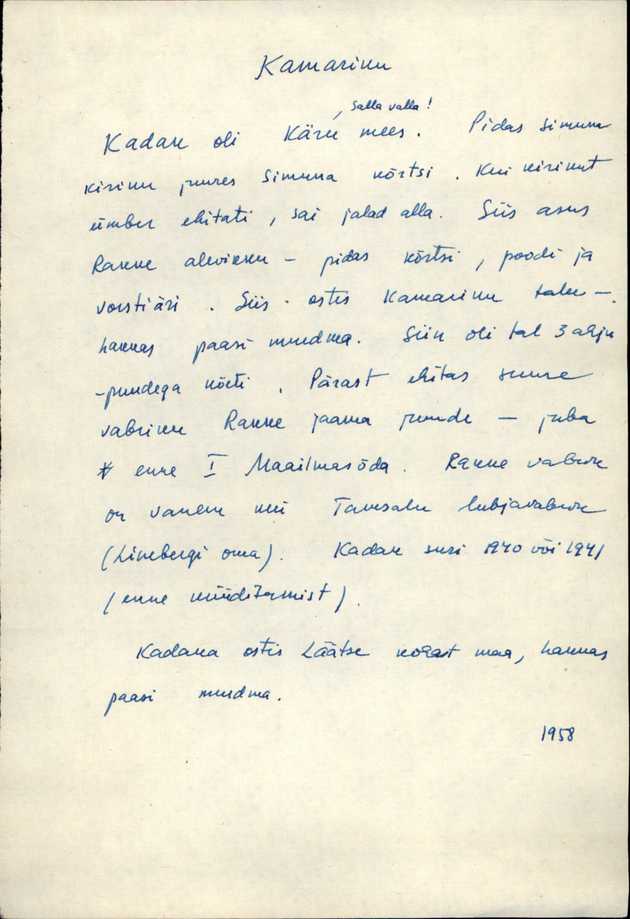 Kamariku
, Salla valla!
Kadak oli Käru mees. Pidas Simuna
kiriku juures Simuna kõrtsi. Kui kirikut
ümber ehitati, sai jalad alla. Siis asus
Rakke alevikku - pidas kõrtsi, poodi ja
vorstiäri. Siis ostis Kamariku talu -
hakkas paasi murdma. Siin oli tal 3 ahju
-puudega köeti. Pärast ehitas suure
vabriku Rakke jaama juurde - juba
enne I Maailmasõda. Rakke vabrik
on vanem kui Tamsalu lubjavabrik
(Linebergi oma). Kadak suri 1940 või 1941
(enne küüditamist).
Kadaka ostis Läätse maa, hakkas
paasi murdma.
1958